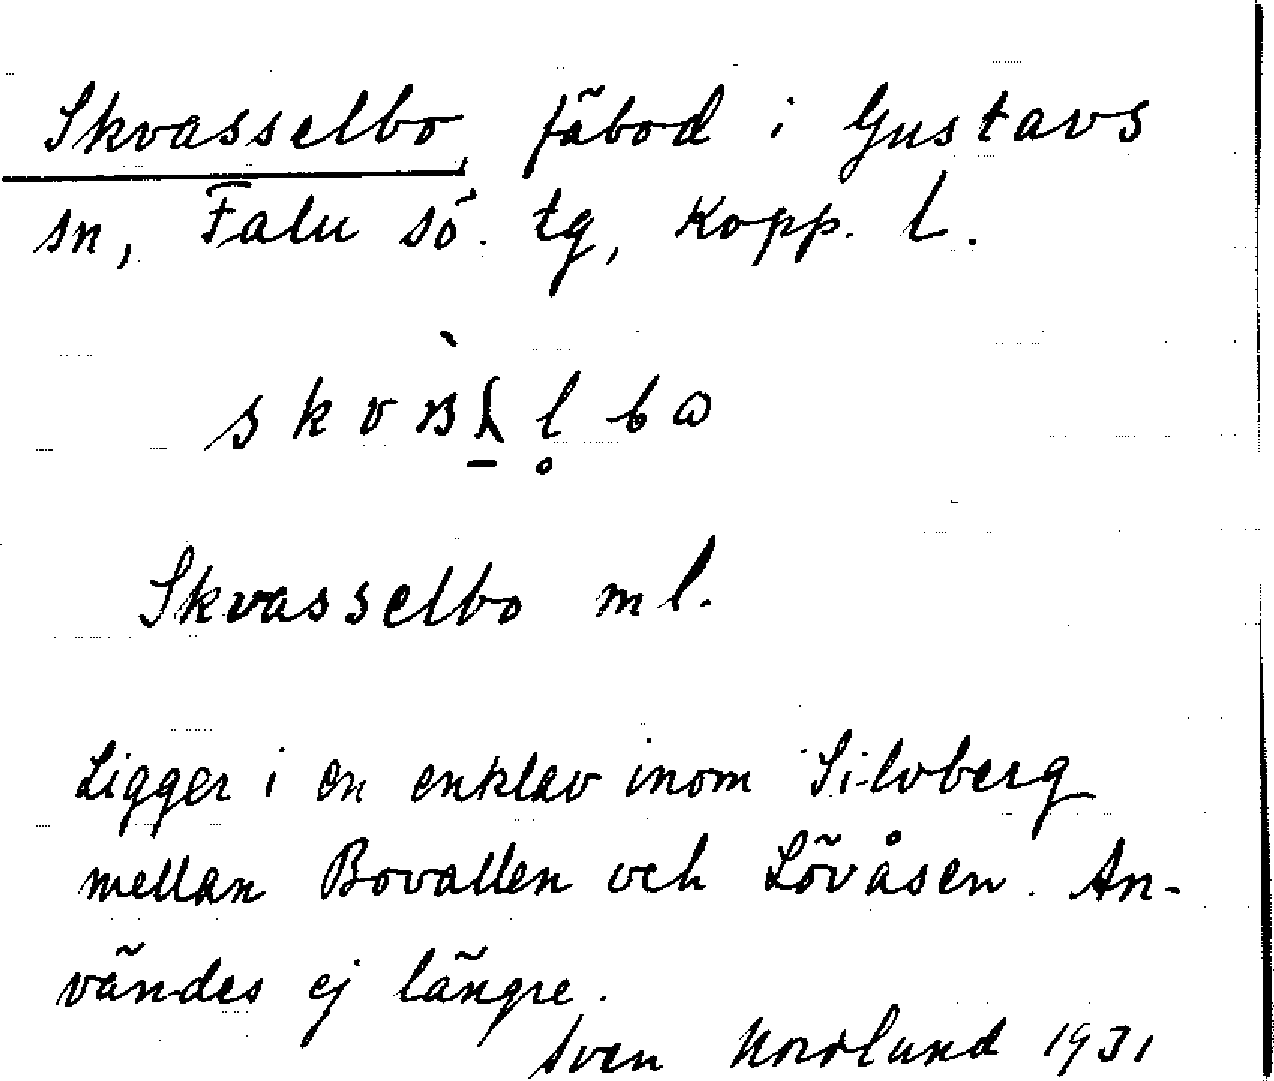 Skvasselbo, fäbod i Gustavs
sn, Falu sö. tg, Kopp. l.
Skvasselbo ml.
Ligger i en enklav inom Silvberg
mellan Bovallen och Lövåsen. An-
vändes ej längre.
Sven Nordlund 1931